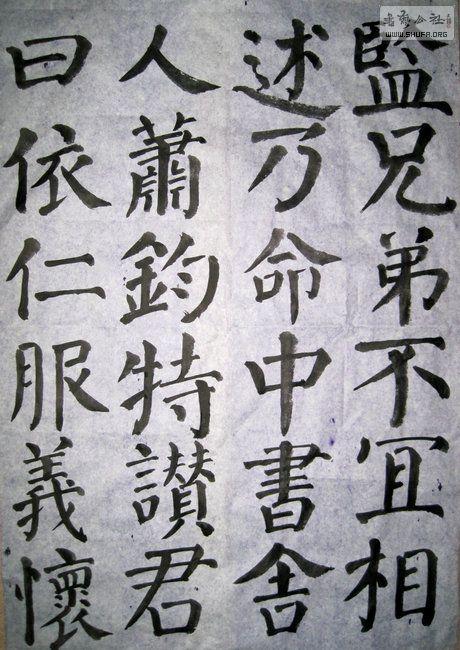 書藝公社
WWW.SHUFA.ORG
監兄弟不宜相
述乃命中書舍
人蕭鈞特讃君
曰依仁服義懷